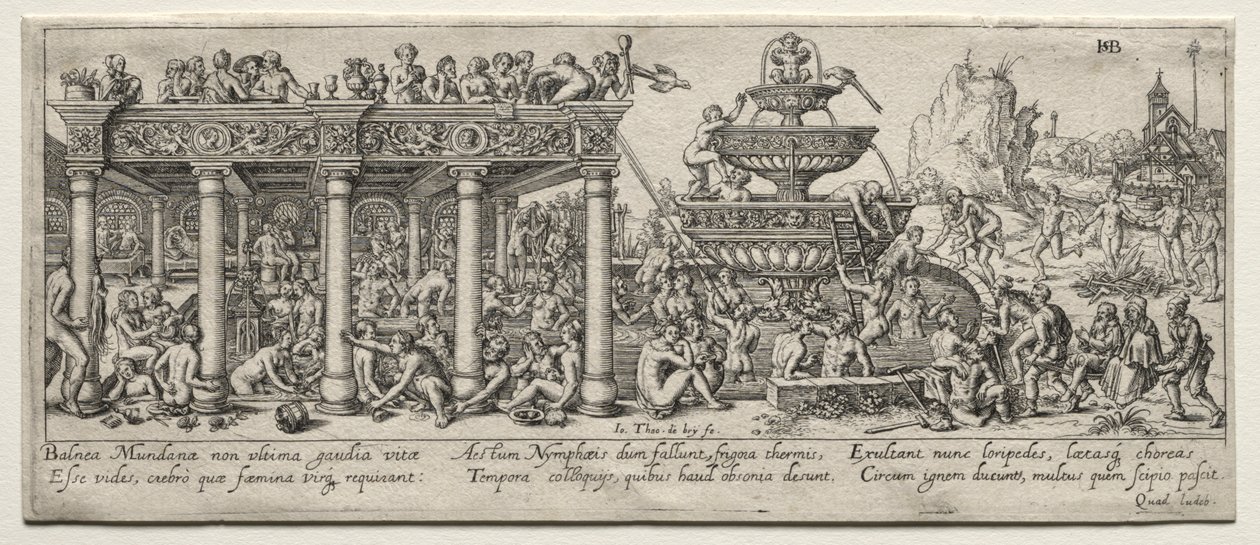 HSB
Io. Theo. de bry fe.
Balnea Mundanæ non vltima gaudia vitæ
Esse vides, crebrò quæ fæmina virq́ requirant:
Aestum Nymphæis dum fallunt, frigora thermis,
Tempora colloquijs, quibus haud obsonia desunt.
Exultant nunc loripedes, lætasq́ choreas
Circum ignem ducunt, multus quem scipio pascit.
Quad ludeb.